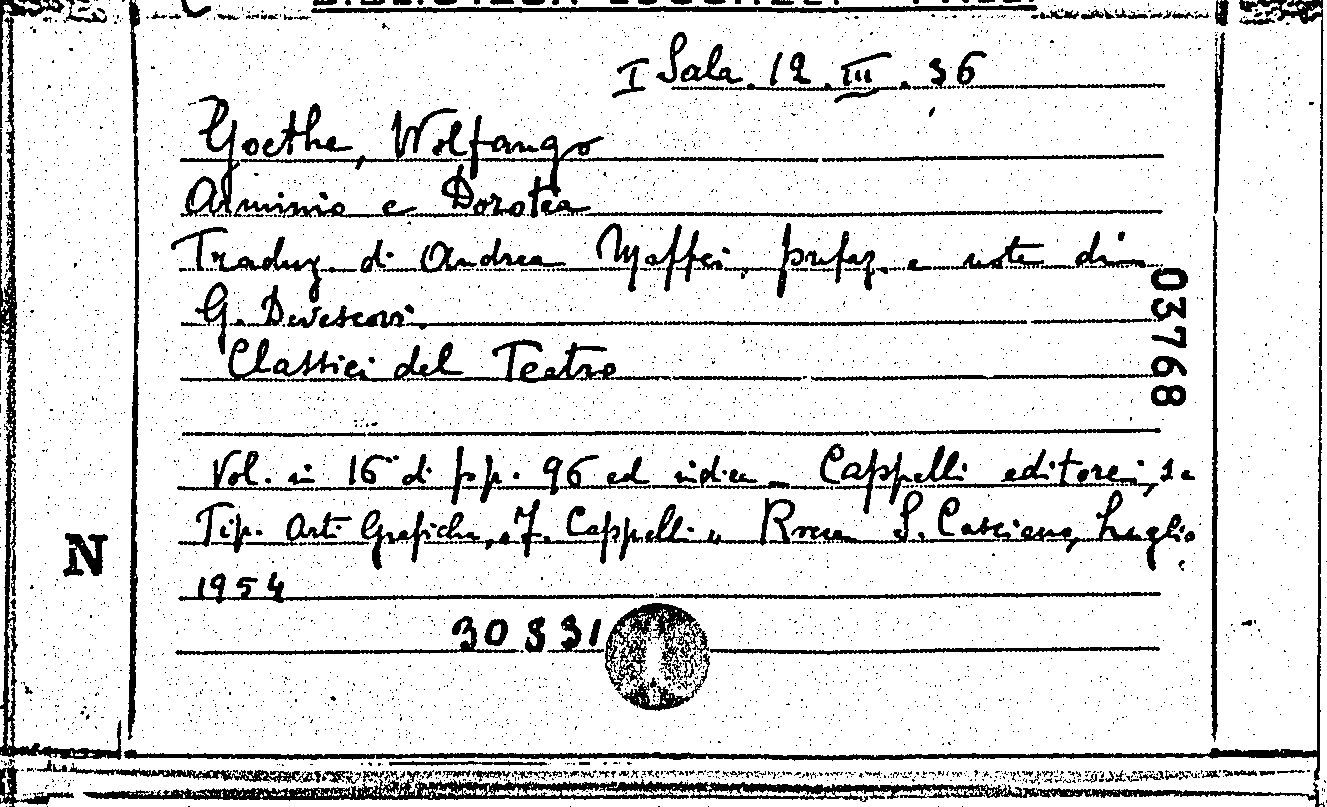 I Sala. 12. III. 36
Goethe, Wolfango
Arminio e Dorotea
Traduz. di Andrea Maffei, prefaz. e note di
G. Devescovi.
Classici del Teatro
03768
Vol. in 16° di pp. 96 ed indice - Cappelli editore
Tip. Arti Grafiche "F. Cappelli" Rocca S. Casciano, Luglio
1954
N